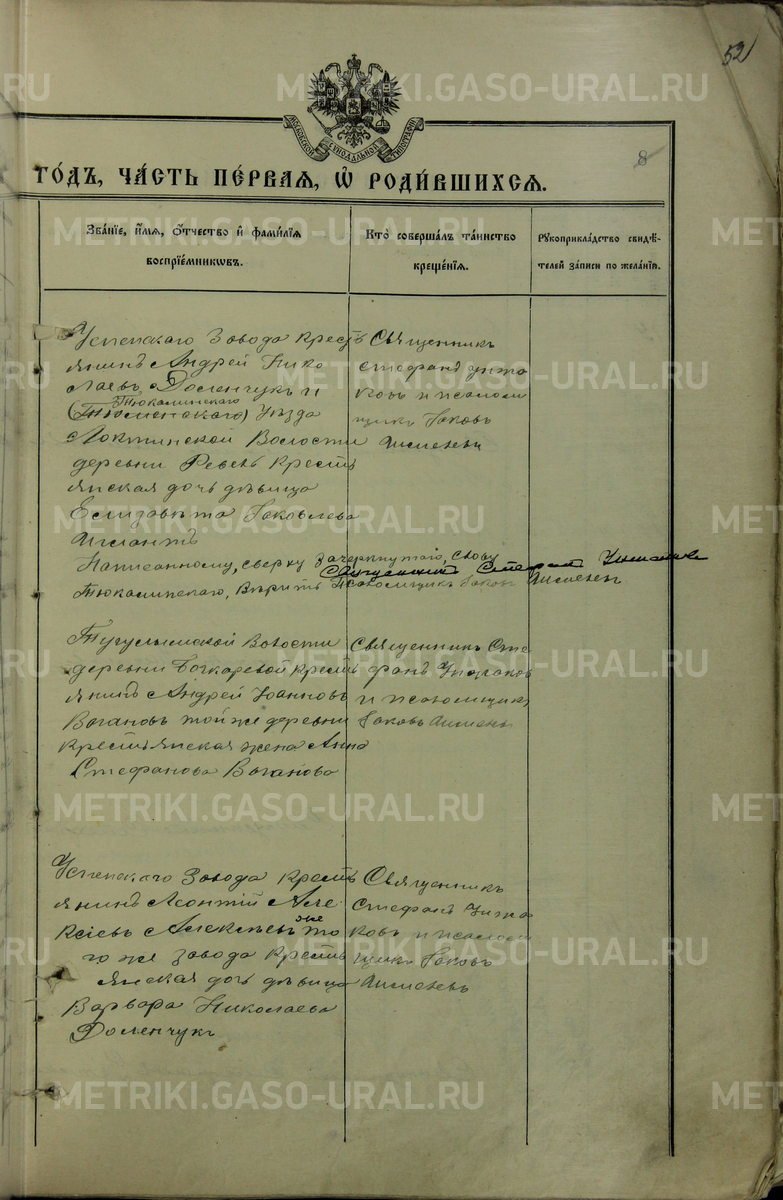 52
8
МОСКОВСКОЙ СѴНОДАЛЬНОЙ ТИПОГРАФІИ
ГО́ДЪ, ЧА́СТЬ ПЕ́РВАЯ, Ѡ҆ РОДИ́ВШИХСѦ.
Зва́нїе, и҆́мѧ, ѻ҆́тчество и҆ фами́лїѧ
воспрїе́мникѡвъ.
Кто̀ соверша́лъ та́инство
креще́нїѧ.
Рꙋкоприкла́дство свидѣ́-
телей за́писи по жела́нїю.
Успенскаго Завода Кресть
янинъ Андрей Нико
лаевъ Доленчукъ и
Тюкалинскаго
(Тюменскаго) Уѣзда
Локтинской Волости
деревни Кресть
янская дочь дѣвица
Елизавета Іаковлева
Написанному, сверху зачеркнутаго, слову
Тюкалинскаго, вѣрить Псаломщикъ Іаковъ
Священникъ Стефанъ
Священникъ
Стефанъ
ковъ и псалом
щикъ Іаковъ
Тугулымской Волости
деревни Бочкаревой Кресть
янинъ Андрей Іоанновъ
Вагановъ той же деревни
крестьянская жена Анна
Стефанова Ваганова
Священникъ Сте
фанъ
и псаломщикъ
Іаковъ
Успенскаго Завода Кресть
янинъ Леонтій Але
ксѣевъ Алексѣевъ то
же
го же завода Кресть
янская дочь дѣвица
Варвара Николаева
Доленчукъ
Священникъ
Стефанъ
ковъ и псалом
щикъ Іаковъ
METRIKI.GASO-URAL.RU